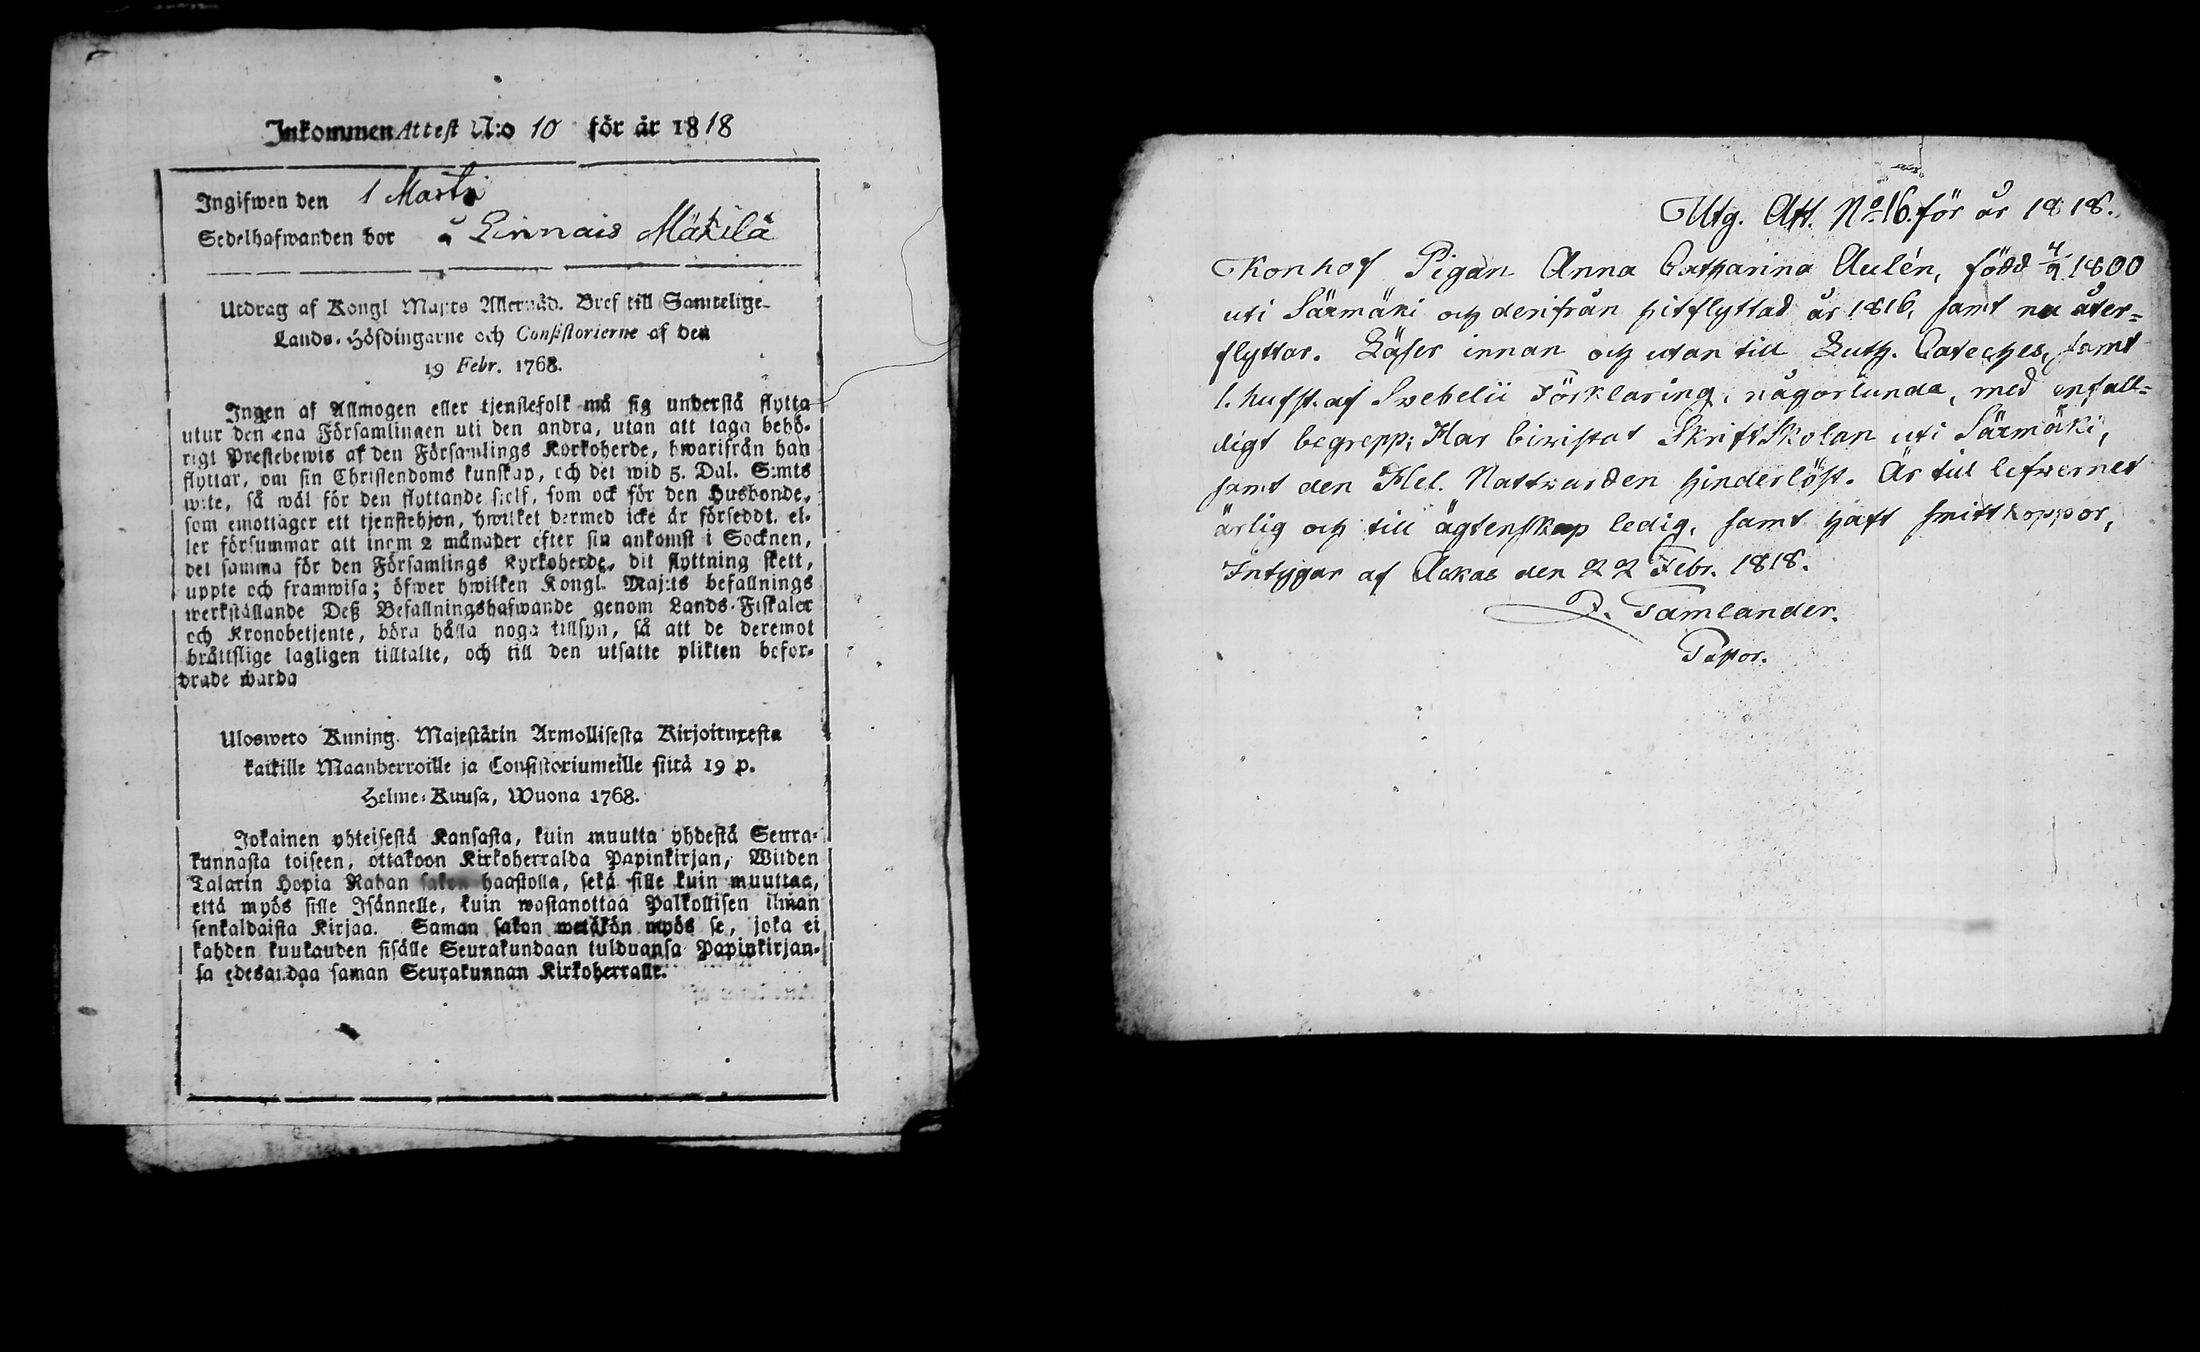 Inkommen Attest N:o 10 för år 1818
Ingifwen den 1 Martii
Sedelhafwanden bor å Linnais Mäkilä
Utdrag af Kongl Maj:ts Allernåd. Bref till Samtelige
Lands-Höfdingarne och Consistorierne af den
19 Febr. 1768.
Ingen af Allmogen eller tjenstefolk må sig understå flytta
utur den ena Församlingen uti den andra, utan att taga behö-
rigt Prestebewis af den Församlings Kyrkoherde, hwarifrån han
flyttar, om sin Christendoms kunskap, och det wid 5. Dal. S:mts
wite, så wäl för den flyttande sielf, som ock för den Husbonde,
som emottager ett tjenstehjon, hwilket dermed icke är förseddt, el-
ler försummar att inom 2 månader efter sin ankomst i Socknen,
det samma för den Församlings Kyrkoherde, dit flyttning skett,
uppte och framwisa; öfwer hwilken Kongl. Maj:ts befallnings
werkställande Deß Befallningshafwande genom Lands-Fiskaler
och Kronobetjente, böra hålla noga tillsyn, så att de deremot
bråttslige lagligen tilltalte, och till den utsatte plikten befor-
drade warda
Ulosweto Kuning. Majestätin Armollisesta Kirjoituxesta
kaikille Maanherroille ja Consistoriumeille siitä 19 p.
Helme-Kuusa, Wuona 1768.
Jokainen yhteisestä Kansasta, kuin muutta yhdestä Seura-
kunnasta toiseen, ottakoon Kirkoherralda Papinkirjan, Wiiden
Talarin Hopia Rahan sakon haastolla, sekä sille kuin muuttaa,
että myös sille Isännelle, kuin wastanottaa Palkollisen ilman
senkaldaista Kirjaa. Saman sakon wetäkön myös se, joka ei
kahden kuukauden sisälle Seurakundaan tulduansa Papinkirjan-
sa edesandaa saman Seurakunnan Kirkoherralle.
Utg. Att. No 16. för år 1818.
Konhof Pigan Anna Catharina Aulén, född 4/9 1800
uti Särmäki och derifrån hitflyttad år 1816, samt nu åter-
flyttar. Läser innan och utan till Luth. Cateches, samt
l. hufst. af Svebelii Förklaring, någorlunda, med enfall-
digt begrepp; Har biwistat SkriftSkolan uti Särmäki,
samt den Hel. Nattwarden hinderlöst. Är till lefwernet
ärlig och till ägtenskap ledig, samt haft smittkoppor,
Intygar af Ackas den 22 Febr. 1818.
P. Tamlander.
Pastor.